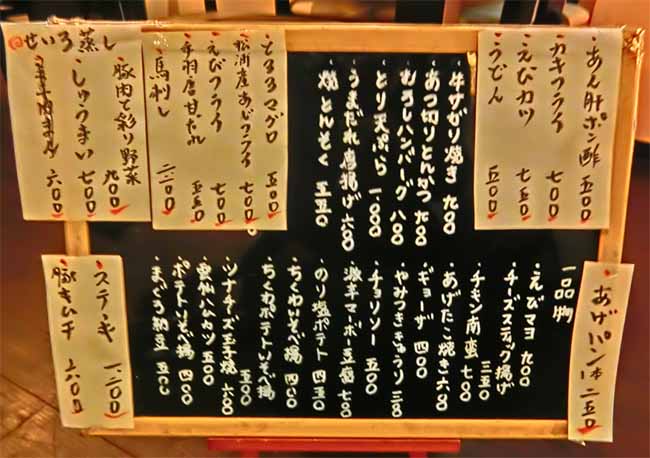 あん肝ポン酢 五〇〇
カキフライ 七〇〇
えびカツ 七五〇
うどん 五〇〇
牛サガリ焼き 九〇〇
あつ切りとんかつ 九〇〇
むろしハンバーグ 八〇〇
とり天ぷら 一、〇〇〇
うまだれ唐揚げ 六〇〇
焼とんそく 五五〇
とろろマグロ 五〇〇
松浦産あじフライ 七〇〇
えびフライ 七〇〇
手羽唐甘だれ 五五〇
馬刺し 一、二〇〇
せいろ蒸し
豚肉と彩り野菜 九〇〇
しゅうまい 七〇〇
六〇〇
あげパン 一本 二五〇
一品物
えびマヨ 九〇〇
チーズスティック揚げ 三五〇
チキン南蛮 七〇〇
あげたこ焼き 六〇〇
ギョーザ 四〇〇
やみつききゅうり 三〇〇
チョリソー 五〇〇
激辛マーボー豆腐 七〇〇
のり塩ポテト 四五〇
ちくわいそべ揚 四〇〇
ちくわポテトいそべ揚
ツナチーズ玉子焼 六〇〇
雲仙ハムカツ 五〇〇
ポテトいそべ揚 四五〇
まぐろ納豆 五五〇
ステーキ 一、二〇〇
豚キムチ 六〇〇